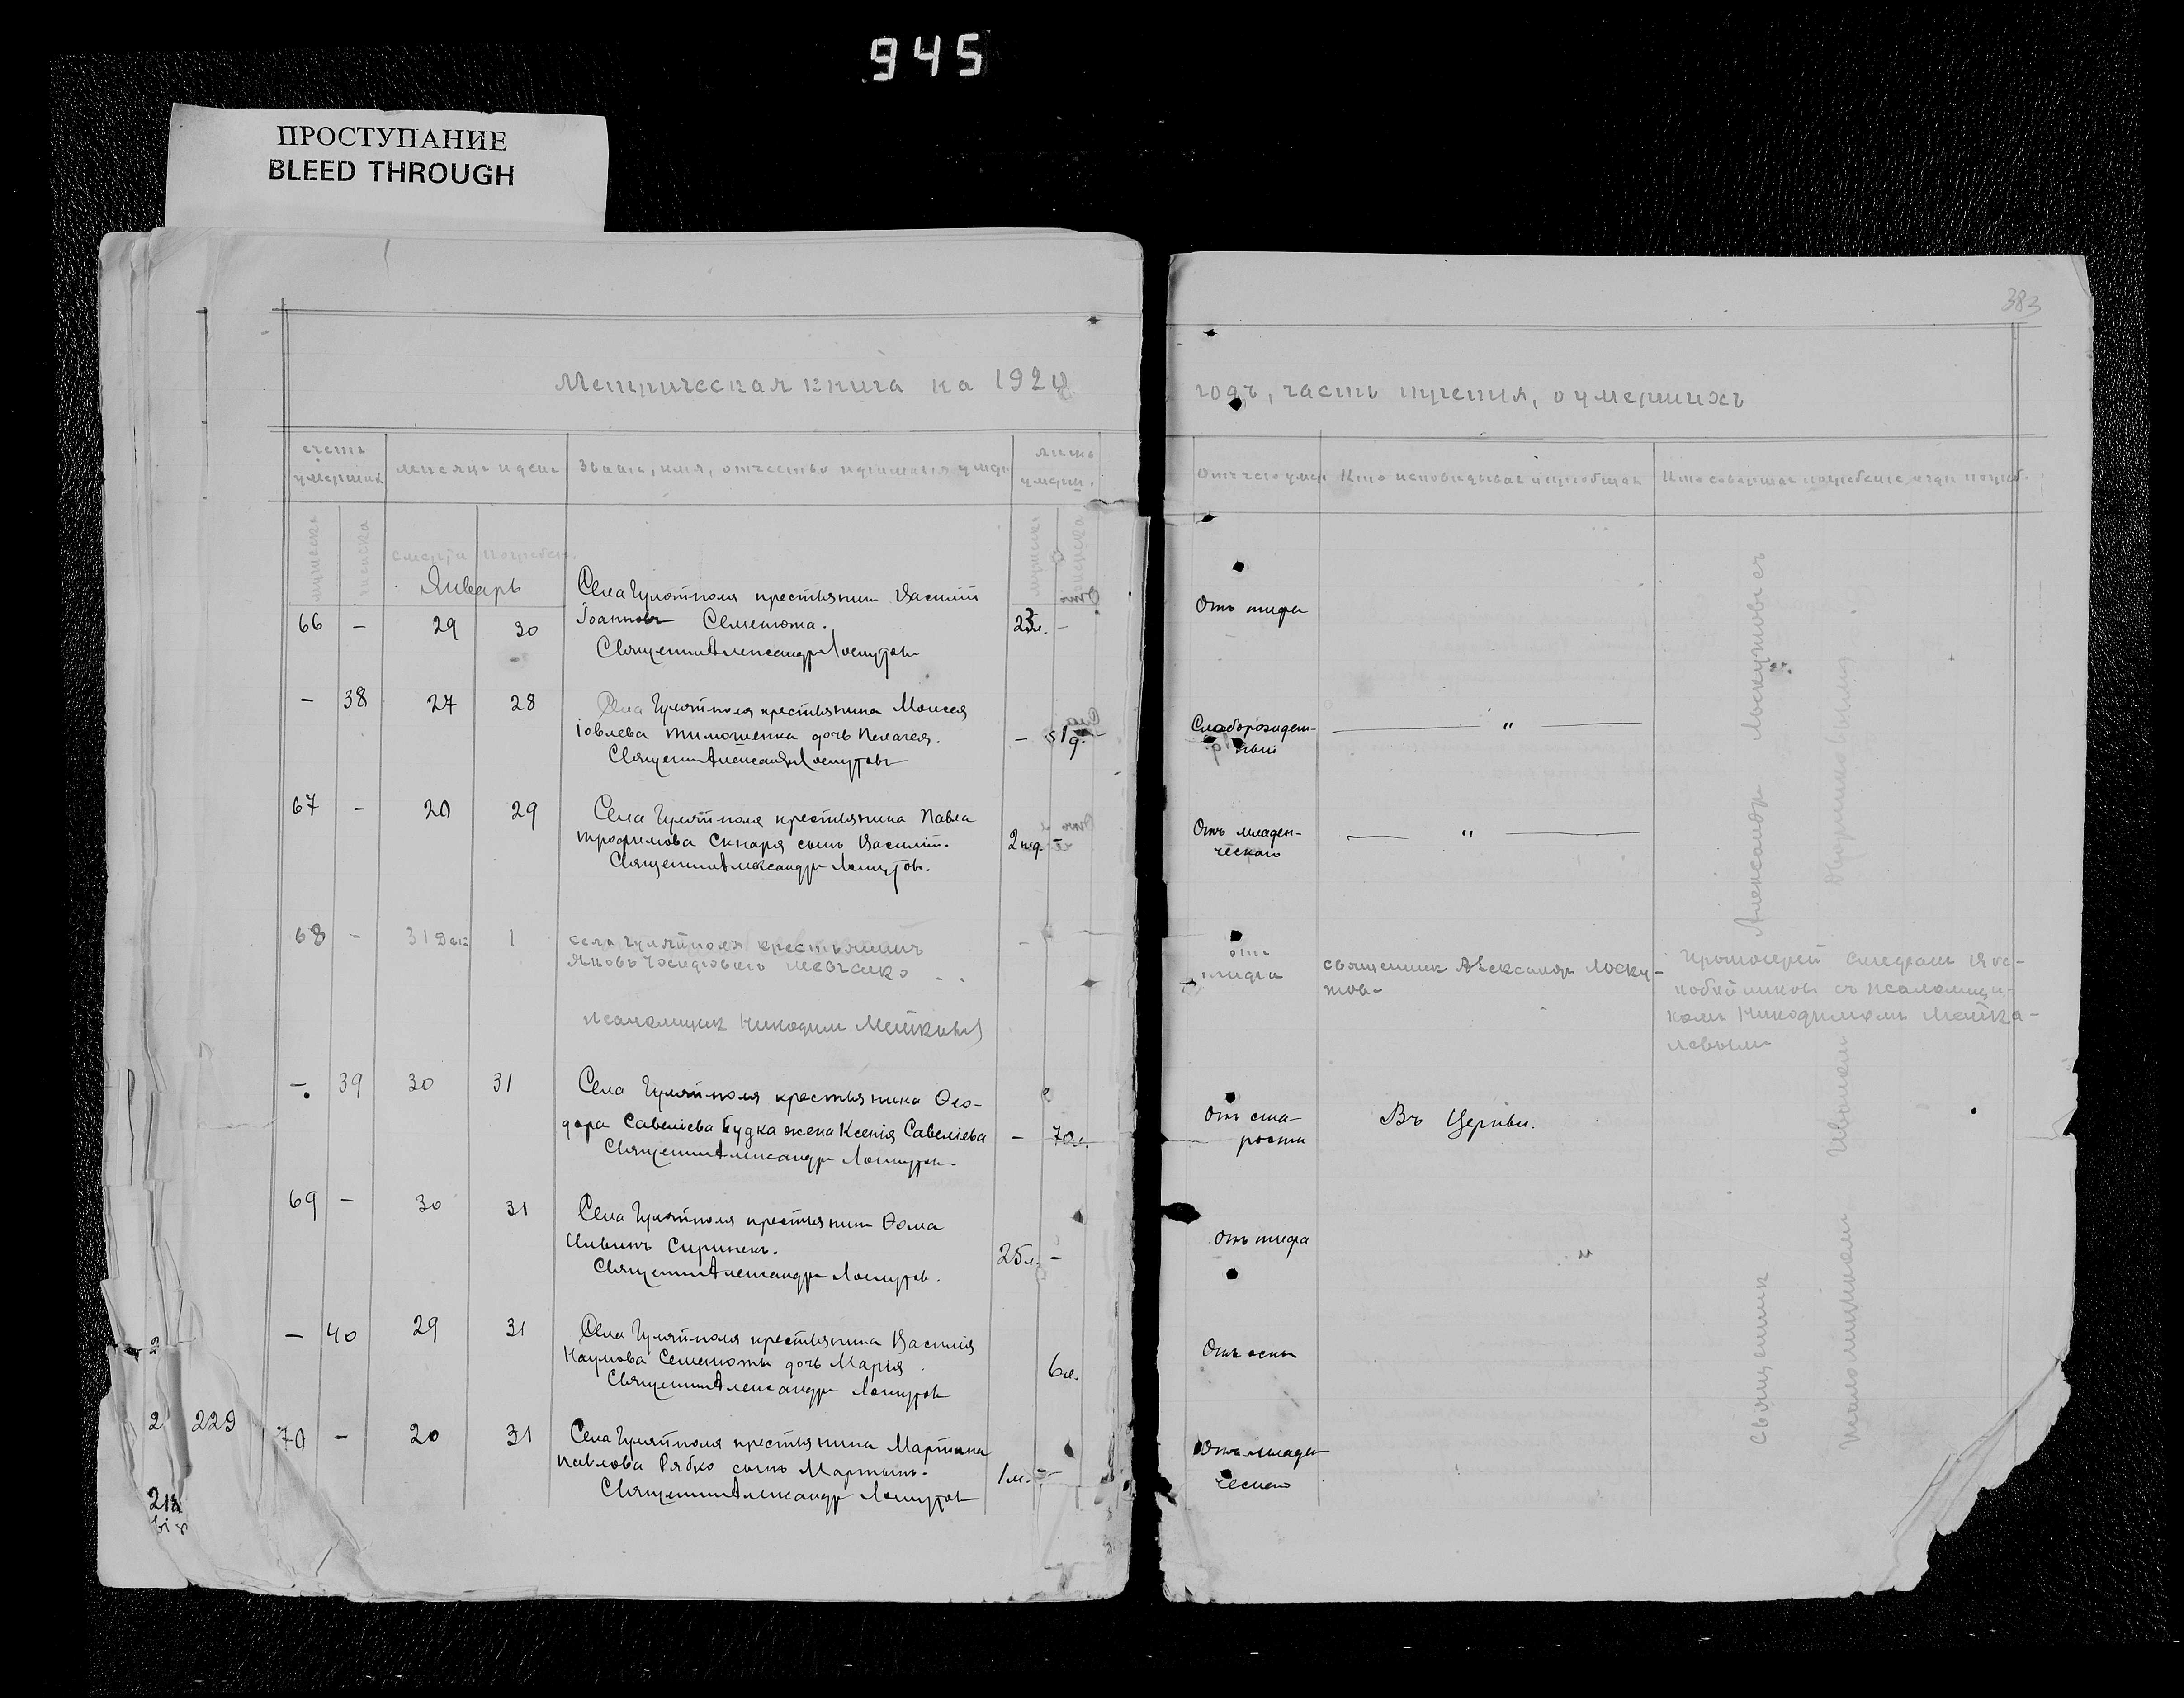 945
ПРОСТУПАНИЕ
BLEED THROUGH
383
Метрическая книга на 1920
годъ, часть третия, о умершихъ
счетъ умерших
месяцъ и день
Звание, имя, отчество и фамилия умер
лета умерш.
Отъ чего умер
Кто исповедывал и приобщал
Кто совершал погребение и где погреб.
мужеска
женска
смерти
погребен.
мужеска
женска
Январь
66 - 29 30
Села Гуляйполя крестьянин Василий
Іоанновъ Семенюта.
23 л. -
Священник Александръ Лоскутовъ
Отъ тифа
- 38 27 28
Села Гуляйполя крестьянина Моисея
Іовлева Тимошенка дочь Пелагея.
- 51 д.
Священник Александръ Лоскутовъ
Слаборожден-
ный
— " —
67 - 20 29
Села Гуляйполя крестьянина Павла
Трофимова Скнаря сынъ Василій.
2 нед. -
Священник Александръ Лоскутовъ.
Отъ младен-
ческаго
— " —
68 - 31 Дек 1
села Гуляйполя крестьянинъ
Яковъ Іосифовичъ Левченко
Псаломщик Никодим
отъ
тифа
священник Александръ Лоску-
тов-
Протоиерей Стефанъ
съ псаломщи-
комъ Никодимомъ
-. 39 30 31
Села Гуляйполя крестьянина Ѳео-
дора Савеліева Будка жена Ксенія Савеліева
- 70 л.
Священник Александръ Лоскутовъ
Отъ ста-
рости
Въ Церкви.
69 - 30 31
Села Гуляйполя крестьянин Ѳома
25 л. -
Священник Александръ Лоскутовъ.
Отъ тифа
"
- 40 29 31
Села Гуляйполя крестьянина Василія
Наумова Семенюты дочь Марія.
6 м.
Священник Александръ Лоскутовъ
Отъ оспы
70 - 20 31
Села Гуляйполя крестьянина Мартина
Павлова Рябко сынъ Мартынъ.
1 м. -
Священник Александръ Лоскутовъ
Отъ младен
ческаго
Священник Александръ Лоскутовъ съ
псаломщиком Иваном
2 229